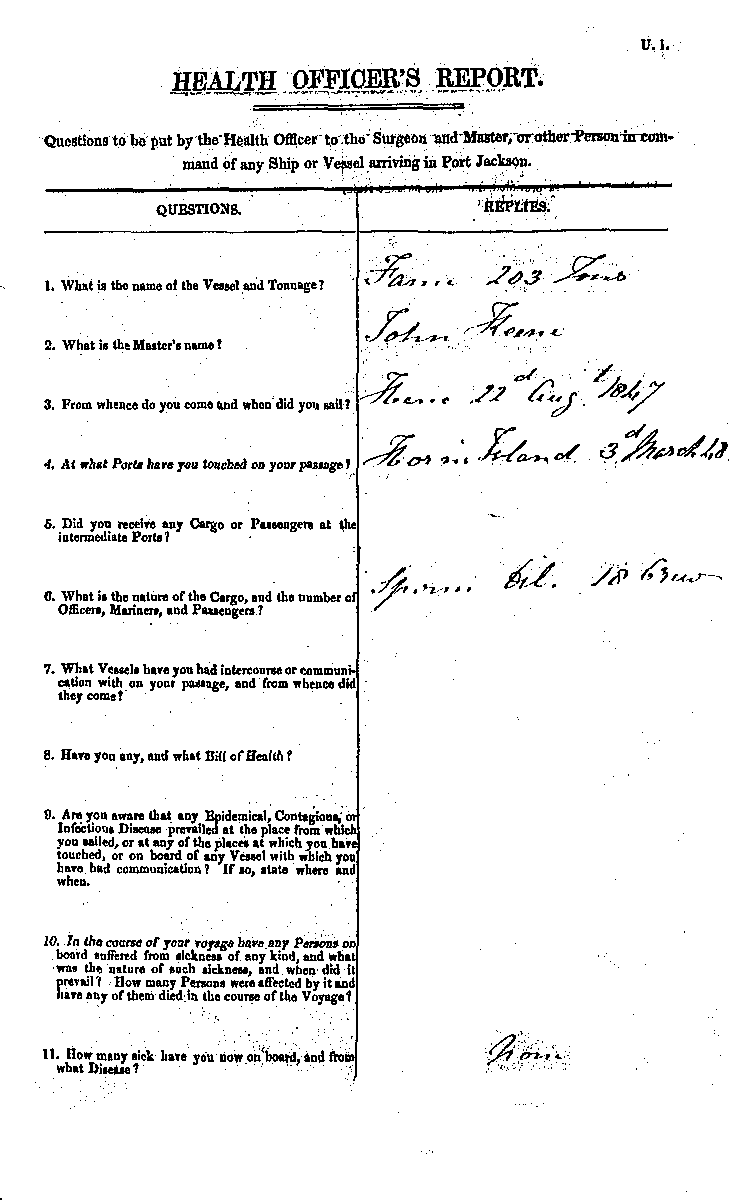 U. 1.
HEALTH OFFICER'S REPORT.
Questions to be put by the Health Officer to the Surgeon and Master, or other Person in com-
mand of any Ship or Vessel arriving in Port Jackson.
QUESTIONS.
REPLIES.
1. What is the name of the Vessel and Tonnage?
Fame 203 Tons
2. What is the Master's name?
John
3. From whence do you come and when did you sail?
22d Augt 1847
4. At what Ports have you touched on your passage?
Island 3d March 48
5. Did you receive any Cargo or Passengers at the
intermediate Ports?
6. What is the nature of the Cargo, and the number of
Officers, Mariners, and Passengers?
Sperm Oil. 18 Crew
7. What Vessels have you had intercourse or communi-
cation with on your passage, and from whence did
they come?
8. Have you any, and what Bill of Health?
9. Are you aware that any Epidemical, Contagious, or
Infectious Disease prevailed at the place from which
you sailed, or at any of the places at which you have
touched, or on board of any Vessel with which you
have had communication? If so, state where and
when.
10. In the course of your voyage have any Persons on
board suffered from sickness of any kind, and what
was the nature of such sickness, and when did it
prevail? How many Persons were affected by it and
have any of them died in the course of the Voyage?
11. How many sick have you now on board, and from
what Disease?
None